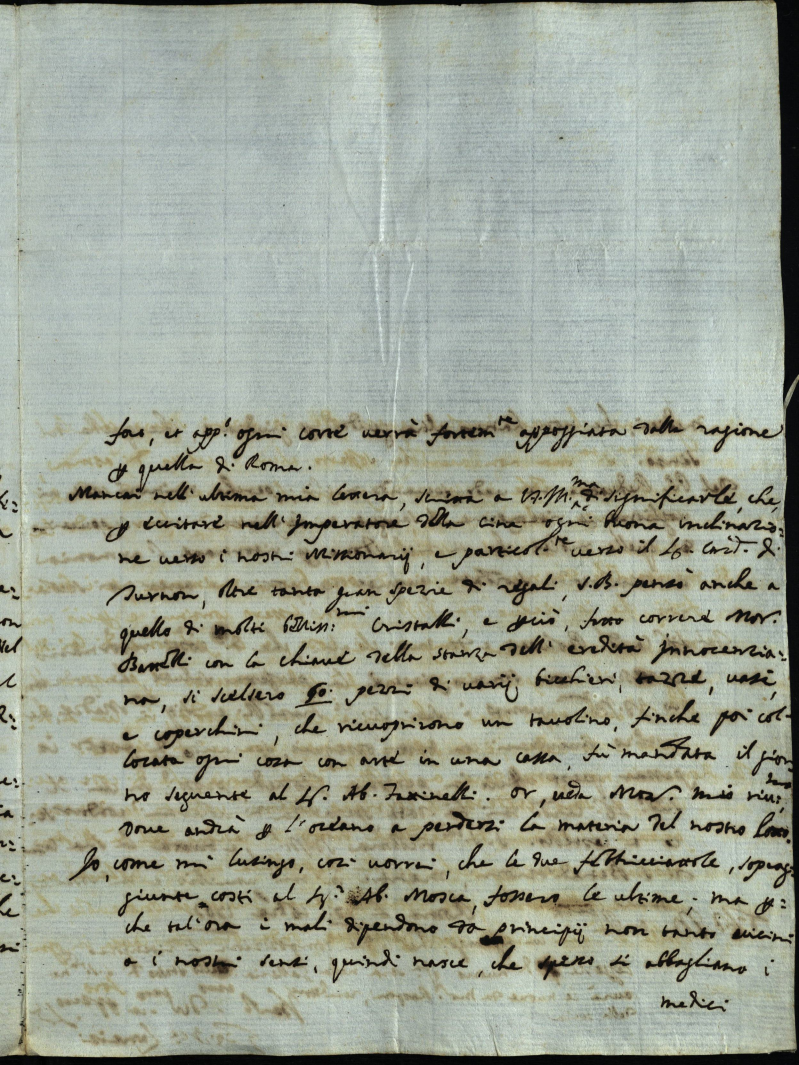 foro, et app.º ogni corte verrà fortem.te appoggiata dalla ragione
ꝑ quella di Roma.
Mancai nell'ultima mia lettera, scritta a V.S.Ill.ma di significarle, che
ꝑ eccitare nell'Imperatore della Cina ogni buona inclinazio=
ne verso i nostri Missionarij, e particol.te verso il Sr. Card. di
Turnon, oltre tanta gran spezie di regali, S.B. pensò anche a
quello di molti belliss:mi Cristalli, e ꝑciò, fatto correre Mor.
con la chiave della stanza dell'eredità Innocenzia=
na, si scelsero 60. pezzi di varij bicchieri, tazze, vasi,
e coperchini, che ricuoprirono un tavolino, finche poi col=
locata ogni cosa con arte in una cassa, fù mandata il gior=
no seguente al Sr. Ab. Fattinelli. Or, veda Mor. mio
dove andrà ꝑ l'oceano a perdersi la materia del nostro
Io, come mi lusingo, così vorrei, che le due febbricciattole, soprag=
giunte costì al Sr. Ab. Mosca, fossero le ultime; ma ꝑ=
che tal'ora i mali dipendono da principij non tanto vicini
a i nostri sensi, quindi nasce, che spesso si abbagliano i
medici